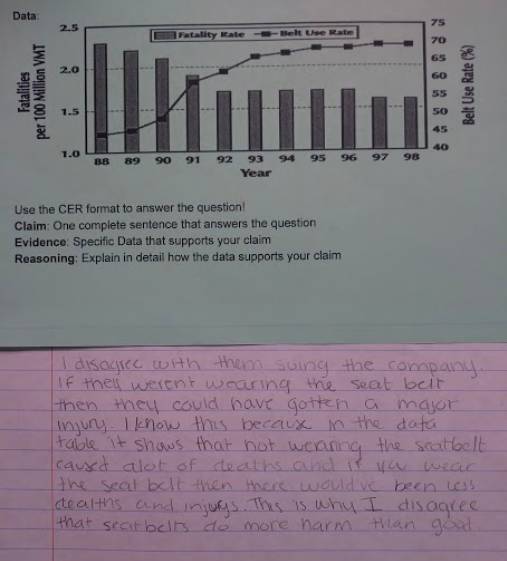 Data:
Fatality Rate Belt Use Rate
Fatalities
per 100 Million VMT
2.5
2.0
1.5
1.0
75
70
65
60
55
50
45
40
Belt Use Rate (%)
88 89 90 91 92 93 94 95 96 97 98
Year
Use the CER format to answer the question!
Claim: One complete sentence that answers the question
Evidence: Specific Data that supports your claim
Reasoning: Explain in detail how the data supports your claim
I disagree with them suing the company.
If they werent wearing the seat belt
then they could have gotten a major
injury. I know this because in the data
table it shows that not wearing the seatbelt
caused alot of deaths and if you wear
the seat belt then there would've been less
deaths and injurys. This is why I disagree
that seatbelts do more harm than goal.